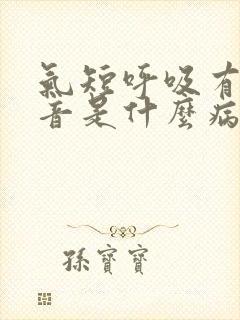 氣短呼吸有
音是什麼病
孫寶寶